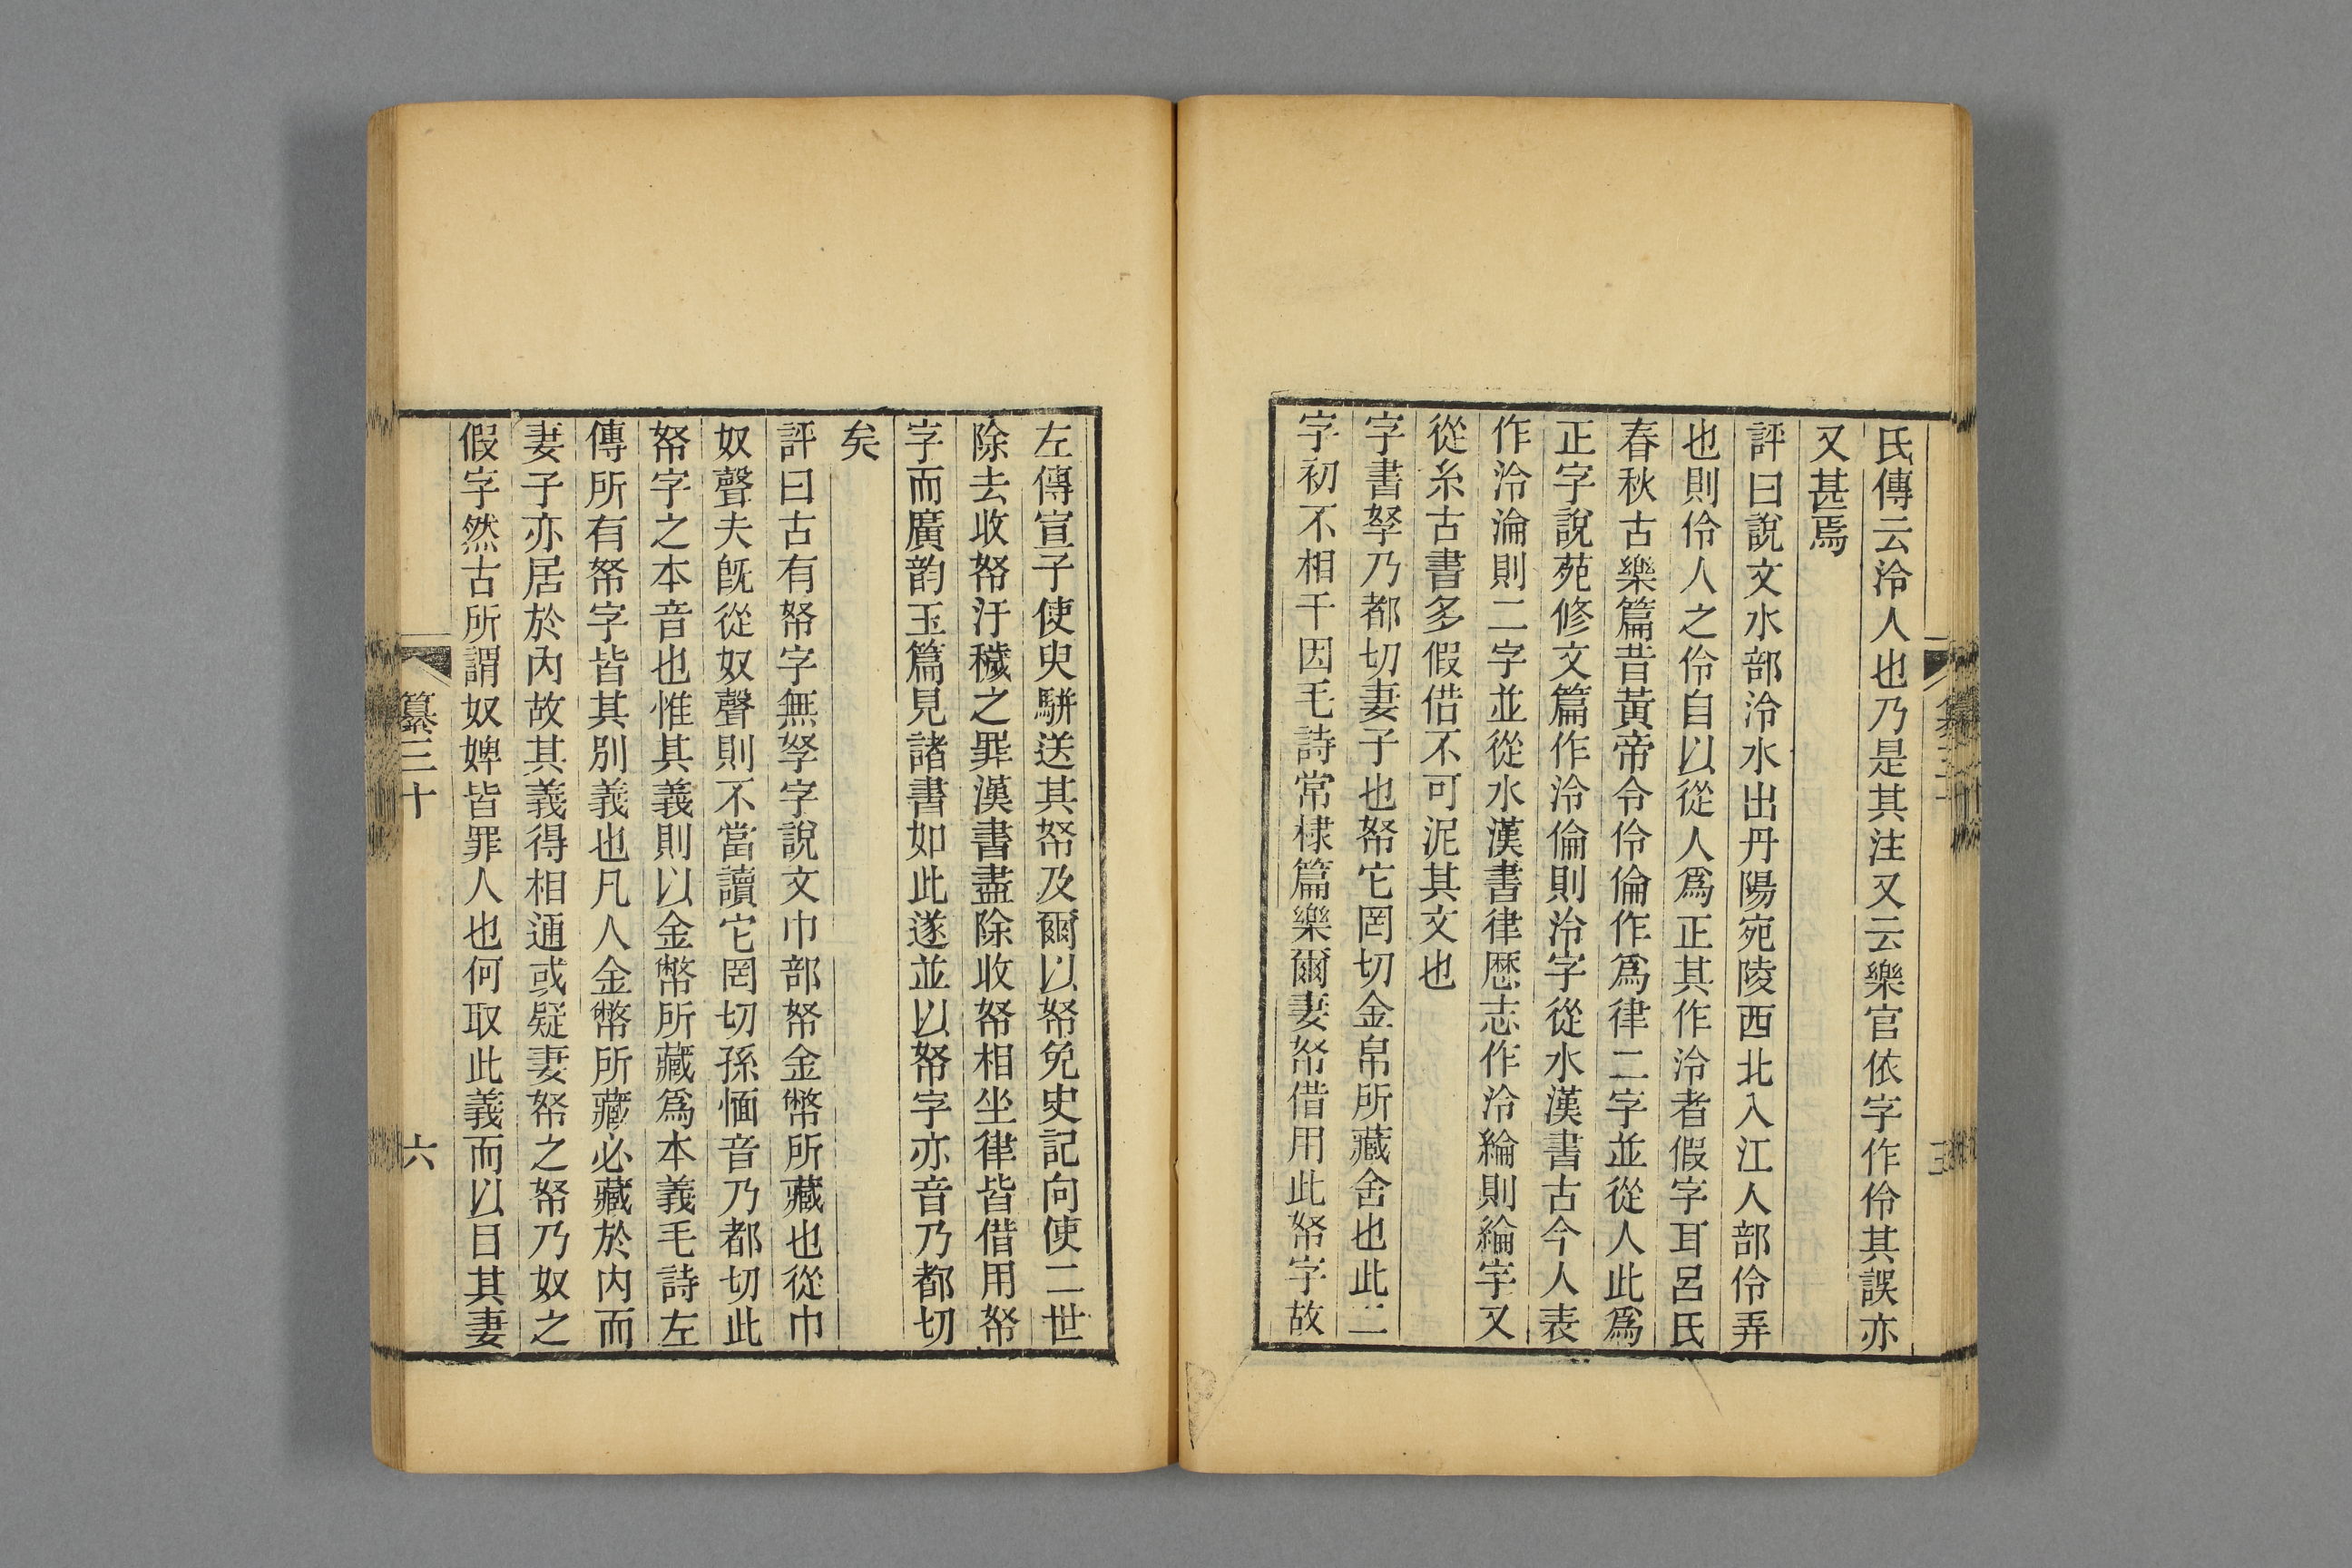 氏傳云泠人也乃是其注又云樂官依字作伶其誤亦
又甚焉
評曰說文水部泠水出丹陽宛陵西北入江人部伶弄
也則伶人之伶自以從人爲正其作泠者假字耳呂氏
春秋古樂篇昔黃帝令伶倫作爲律二字並從人此爲
正字說苑修文篇作泠倫則泠字從水漢書古今人表
作泠淪則二字並從水漢書律厯志作泠綸則綸字又
從糸古書多假借不可泥其文也
字書孥乃都切妻子也帑它罔切金帛所藏舍也此二
字初不相干因毛詩常棣篇樂爾妻帑借用此帑字故
左傳宣子使臾駢送其帑及爾以帑免史記向使二世
除去收帑汙穢之罪漢書盡除收帑相坐律皆借用帑
字而廣韵玉篇見諸書如此遂並以帑字亦音乃都切
矣
評曰古有帑字無孥字說文巾部帑金幣所藏也從巾
奴聲夫旣從奴聲則不當讀它罔切孫愐音乃都切此
帑字之本音也惟其義則以金幣所藏爲本義毛詩左
傳所有帑字皆其別義也凡人金幣所藏必藏於內而
妻子亦居於內故其義得相通或疑妻帑之帑乃奴之
假字然古所謂奴婢皆罪人也何取此義而以目其妻
纂三十
六